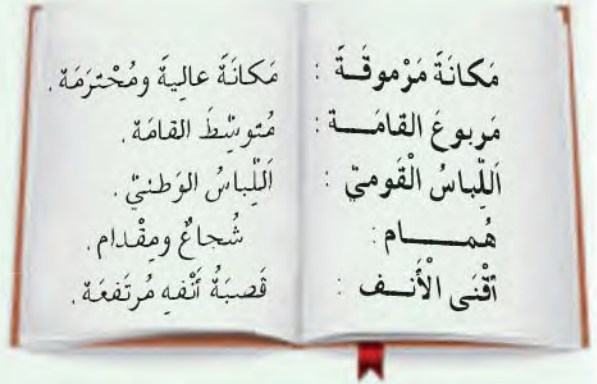 مَكانَةً مَرْموقَـةً : مَكانَةً عاليةً ومُحْترَمَة .
مَربوعَ القامَـــة : مُتوسِّطَ القامَة .
اَللِّباسُ الْقَوميّ : اَللِّباسُ الوَطنيّ .
هُمـــــام : شُجاعٌ ومِقْدام .
أقْنَى الْأَنــف : قَصبَةُ أَنْفه مُرتَفعَة .